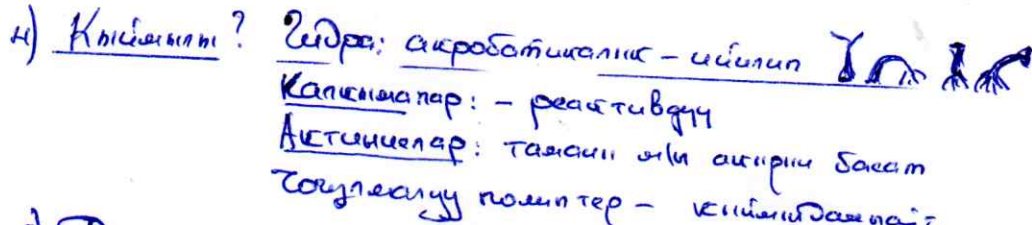 н) Кыймылы? Гидра: акробатикалык - ийилип
Калкымалар: - реактивдүү
Актиниелар: таманы м/н акырын басат
Тоѳулмалуу полиптер - кыймылдашпайт